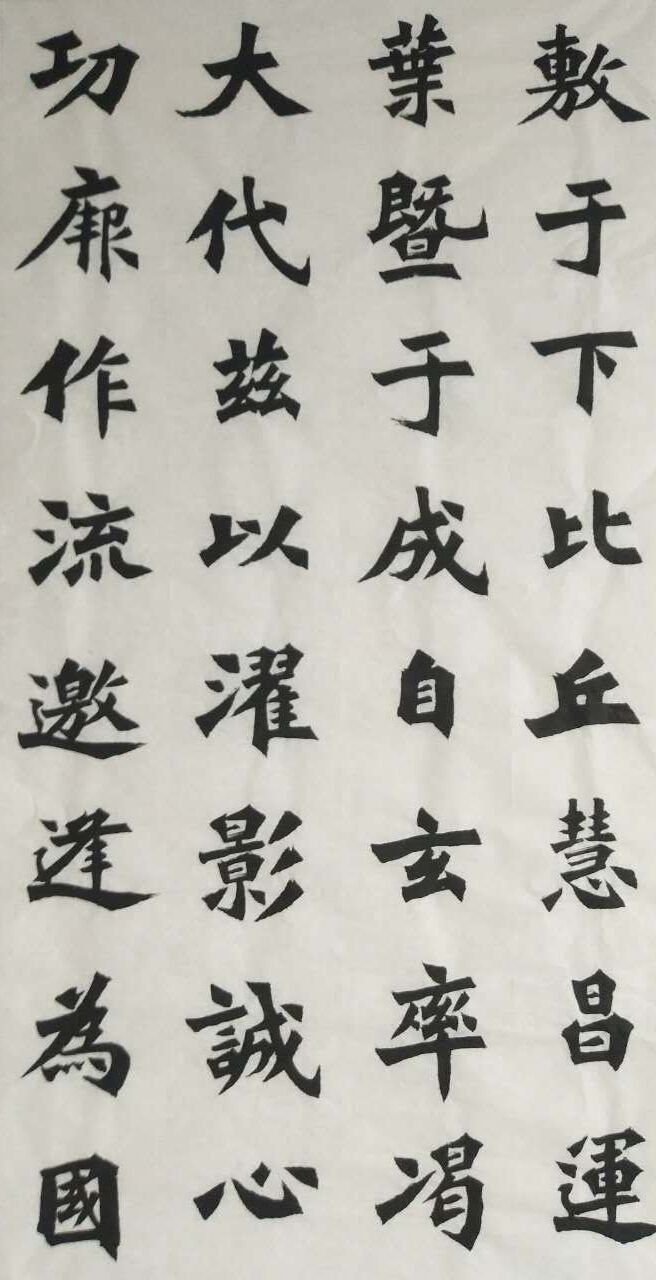 敷于下比丘慧昌運
葉暨于成自玄率渴
大代茲以濯影誠心
功厥作流邀逢為國